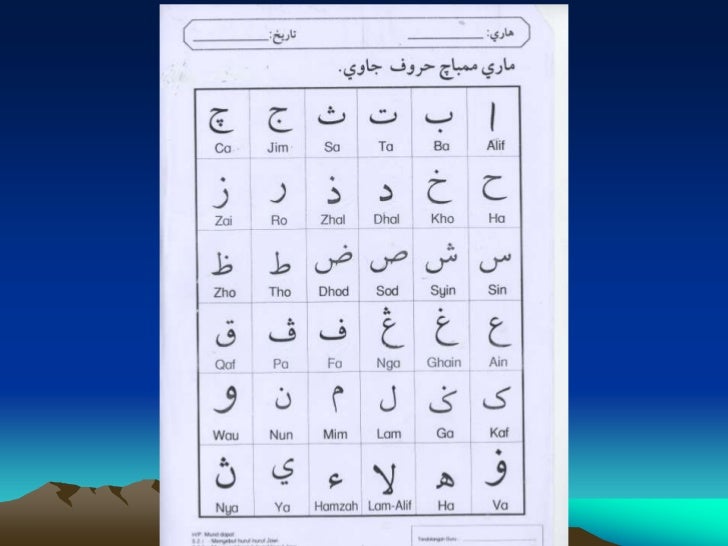 هاري: __________ تاريخ: __________
ماري ممباچ حروف جاوي.
ا ب ت ث ج چ
Ca Jim Sa Ta Ba Alif
ح خ د ذ ر ز
Zai Ro Zhal Dhal Kho Ha
س ش ص ض ط ظ
Zho Tho Dhod Sod Syin Sin
ع غ ڠ ف ڤ ق
Qaf Pa Fa Nga Ghain Ain
ک ݢ ل م ن و
Wau Nun Mim Lam Ga Kaf
ۏ ه لا ء ي ڽ
Nya Ya Hamzah Lam-Alif Ha Va
H/P: Murid dapat
Tandatangan Guru: